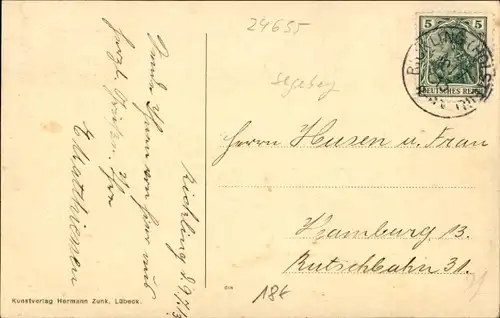 24635
Segeberg
5
DEUTSCHES REICH
RICKLING (HOLSTEIN)
Herrn Husen u. Frau
Hamburg 13.
Rutschbahn 31.
Rickling d. 9/7/13
Sende Ihnen von hier aus
herzl. Grüße. Ihr
E. Matthiessen
18€
Kunstverlag Hermann Zunk, Lübeck.